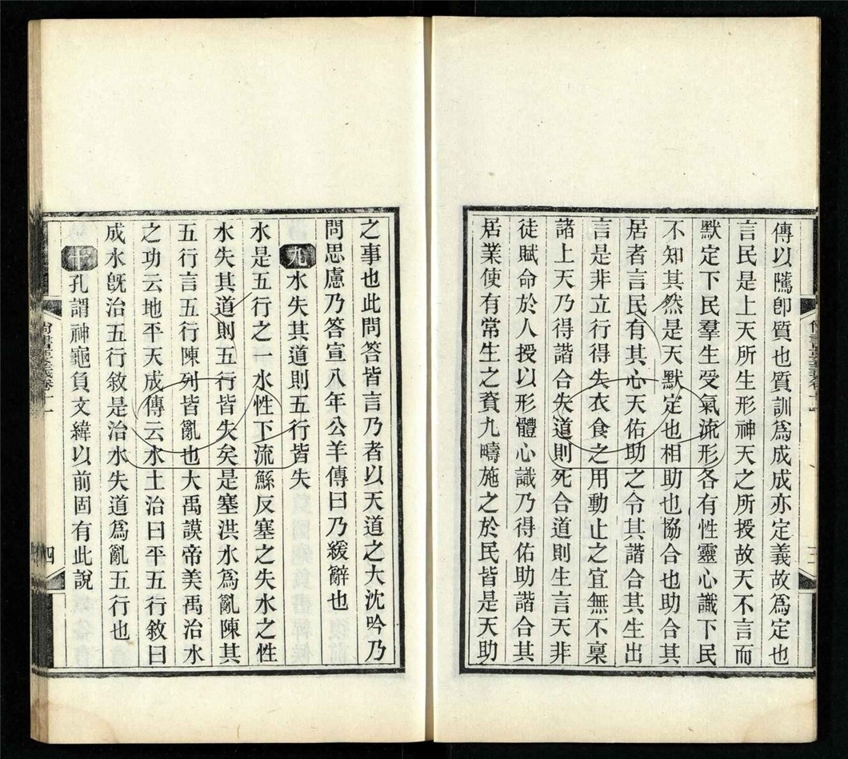 傳以騭卽質也質訓爲成成亦定義故爲定也
言民是上天所生形神天之所授故天不言而
默定下民羣生受氣流形各有性靈心識下民
不知其然是天默定也相助也協合也助合其
居者言民有其心天佑助之令其諧合其生出
言是非立行得失衣食之用動止之宜無不稟
諸上天乃得諧合失道則死合道則生言天非
徒賦命於人授以形體心識乃得佑助諧合其
居業使有常生之資九疇施之於民皆是天助
之事也此問答皆言乃者以天道之大沈吟乃
問思慮乃答宣八年公羊傳曰乃緩辭也
九水失其道則五行皆失
水是五行之一水性下流鯀反塞之失水之性
水失其道則五行皆失矣是塞洪水爲亂陳其
五行言五行陳列皆亂也大禹謨帝美禹治水
之功云地平天成傳云水土治曰平五行敘曰
成水旣治五行敘是治水失道爲亂五行也
十孔謂神龜負文緯以前固有此說
四